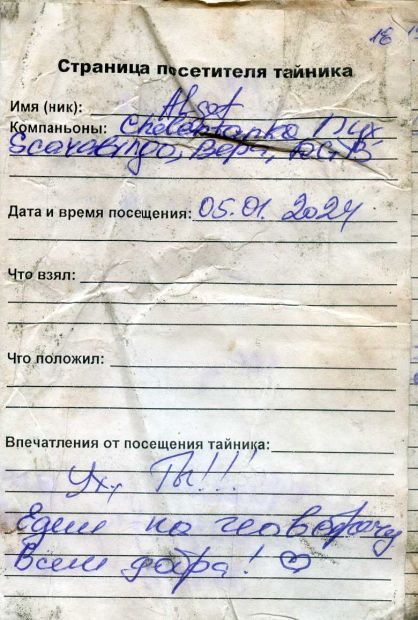 16
Страница посетителя тайника
Имя (ник): Alsof
Компаньоны:
Scarabingo, Вера,
Дата и время посещения: 05.01.2024
Что взял:
Что положил:
Впечатления от посещения тайника:
Ух, ты!!!
Едем на
Всем добра! ♡